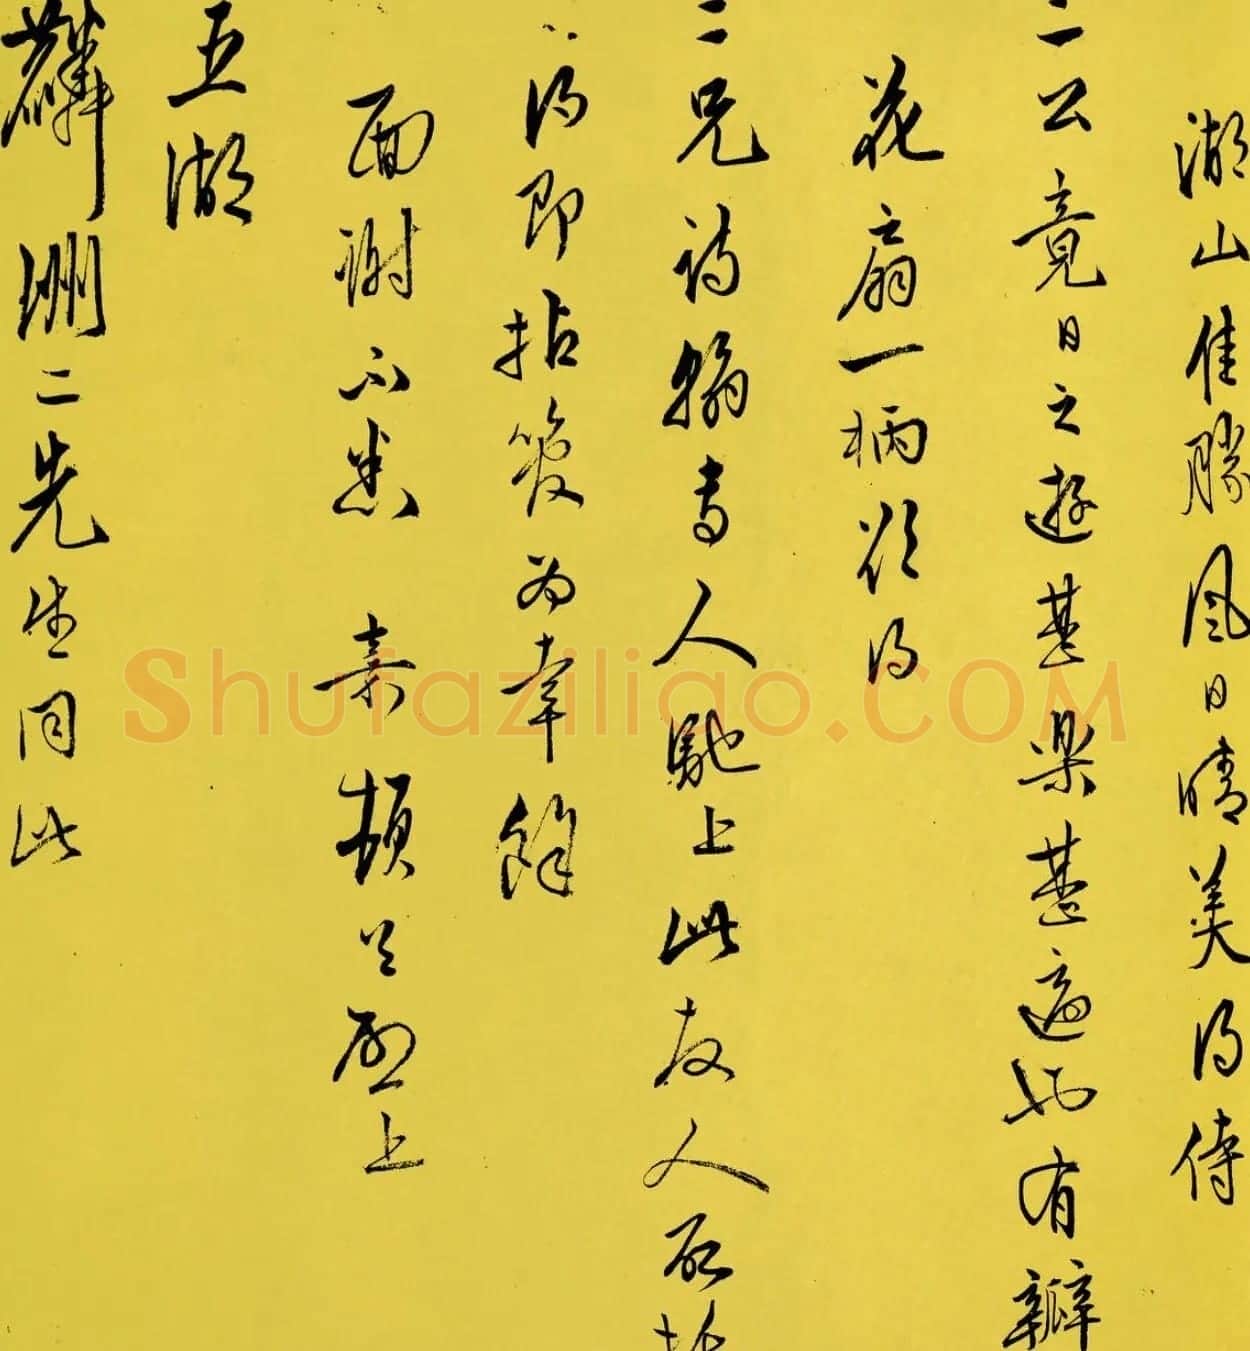 湖山佳勝風日晴美得侍
二公竟日之遊甚樂甚適有瓣
花扇一柄欲得
二兄詩翰專人馳上此友人所托
得即拈發為幸餘
面謝不悉 嘉頓首啟上
五湖
麟洲二先生同此
Shufaziliao.COM